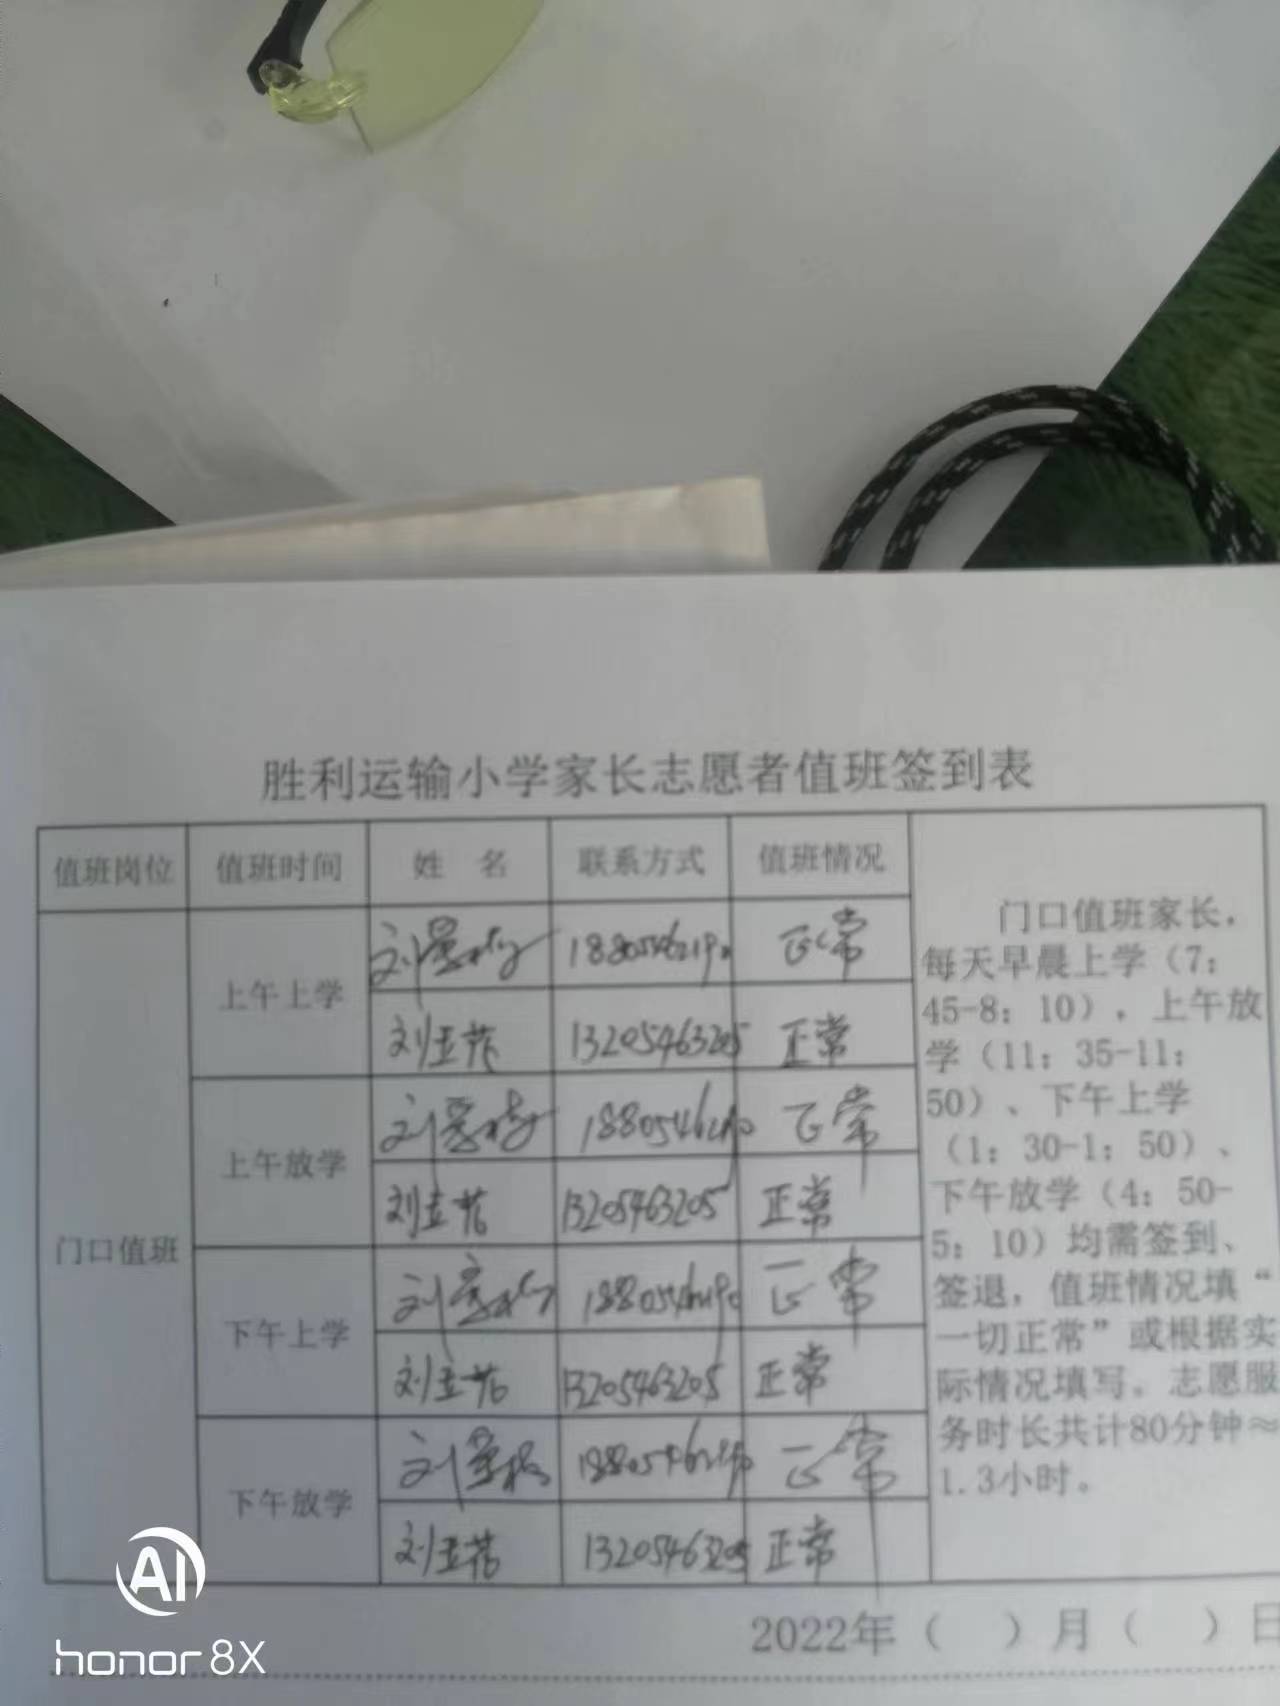 胜利运输小学家长志愿者值班签到表
值班岗位 值班时间 姓 名 联系方式 值班情况
门口值班家长，
每天早晨上学（7：
45-8：10），上午放
学（11：35-11：
50）、下午上学
（1：30-1：50）、
下午放学（4：50-
5：10）均需签到、
签退，值班情况填“
一切正常”或根据实
际情况填写。志愿服
务时长共计80分钟≈
1.3小时。
门口值班
上午上学
正常
13205463205 正常
上午放学
正常
13205463205 正常
下午上学
正常
13205463205 正常
下午放学
正常
13205463205 正常
2022年（ ）月（ ）日
AI
honor 8X